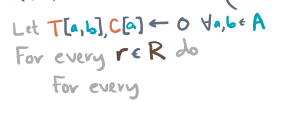 Let T[a,b], C[a] ← 0 ∀a,b ∈ A
For every r ∈ R do
For every